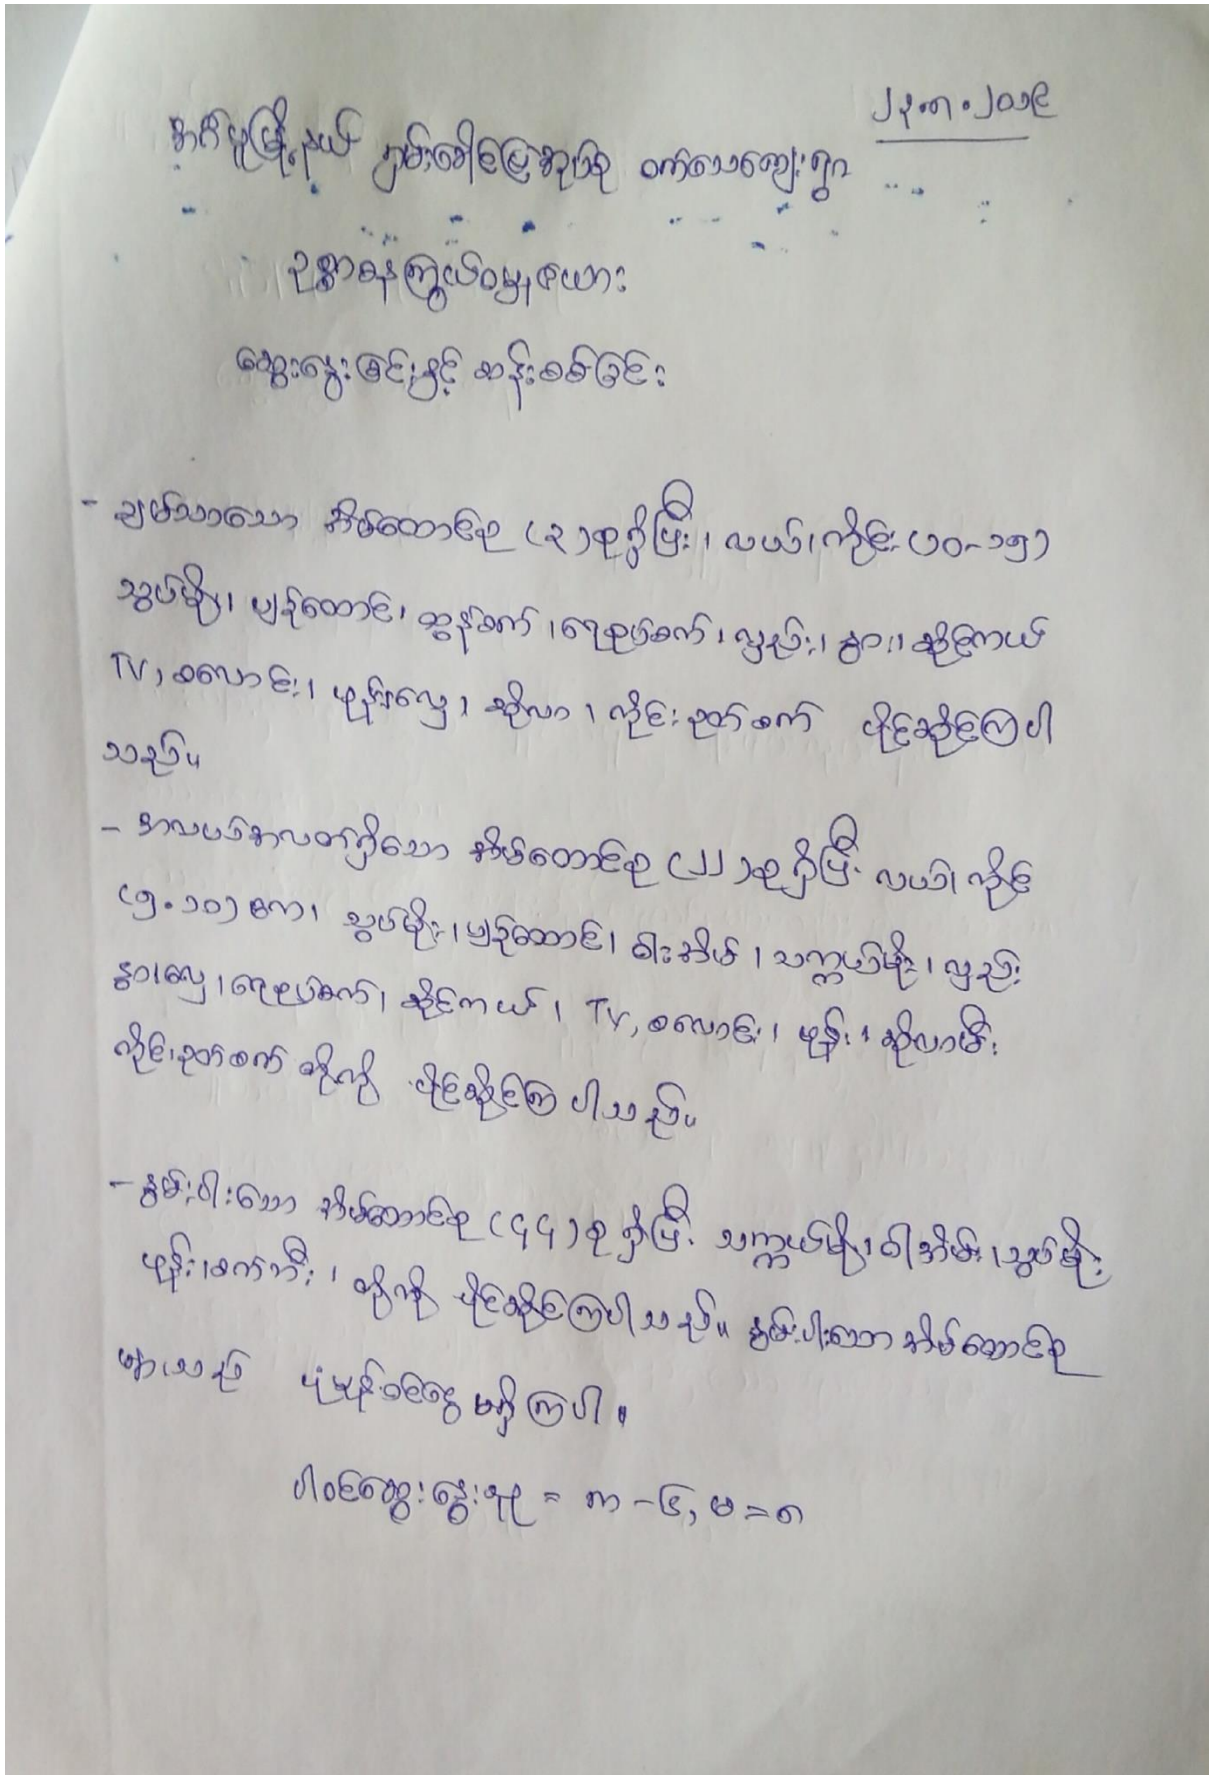 ၂၃.၈.၂၀၁၉
အင်္ဂပူမြို့နယ် ကျွမ်းခေါင်မြေအုပ်စု ဝက်သေကျေးရွာ
ဥစ္စာဓနကြွယ်ဝမှုဇယား
ဆွေးနွေးခြင်းနှင့် ဆန်းစစ်ခြင်း
- ချမ်းသာသော အိမ်ထောင်စု (၃)စုရှိပြီး၊ လယ်၊ ကိုင်း (၁၀-၁၅)
သွပ်မိုး၊ ပျဉ်ထောင်၊ ထွန်စက်၊ ရေစုပ်စက်၊ လှည်း၊ နွား၊ ဆိုင်ကယ်
TV, စလောင်း၊ ဖုန်း၊ လှေ၊ ဆိုလာ၊ ကိုင်းဥတ်စက် ပိုင်ဆိုင်ကြပါ
သည်။
- အလယ်အလတ်ရှိသော အိမ်ထောင်စု (၂၂)စုရှိပြီး လယ်၊ ကိုင်း
(၅.၁၀) ဧက၊ သွပ်မိုး၊ ပျဉ်ထောင်၊ ဝါးအိမ်၊ သက္ကယ်မိုး၊ လှည်း
နွား၊ လှေ၊ ရေစုပ်စက်၊ ဆိုင်ကယ်၊ TV, စလောင်း၊ ဖုန်း၊ ဆိုလာမီး
ကိုင်းဥတ်စက် တို့ကို ပိုင်ဆိုင်ကြပါသည်။
- နွမ်းပါးသော အိမ်ထောင်စု (၄၄)စုရှိပြီး သက္ကယ်မိုး၊ ဝါးအိမ်၊ သွပ်မိုး
ဖုန်း၊ စက်ဘီး၊ တို့ကို ပိုင်ဆိုင်ကြပါသည်။ နွမ်းပါးသော အိမ်ထောင်စု
များသည် ပုံမှန်ဝင်ငွေ မရှိကြပါ။
ပါဝင်ဆွေးနွေးသူ = ကျား - ၆, မ = ၈